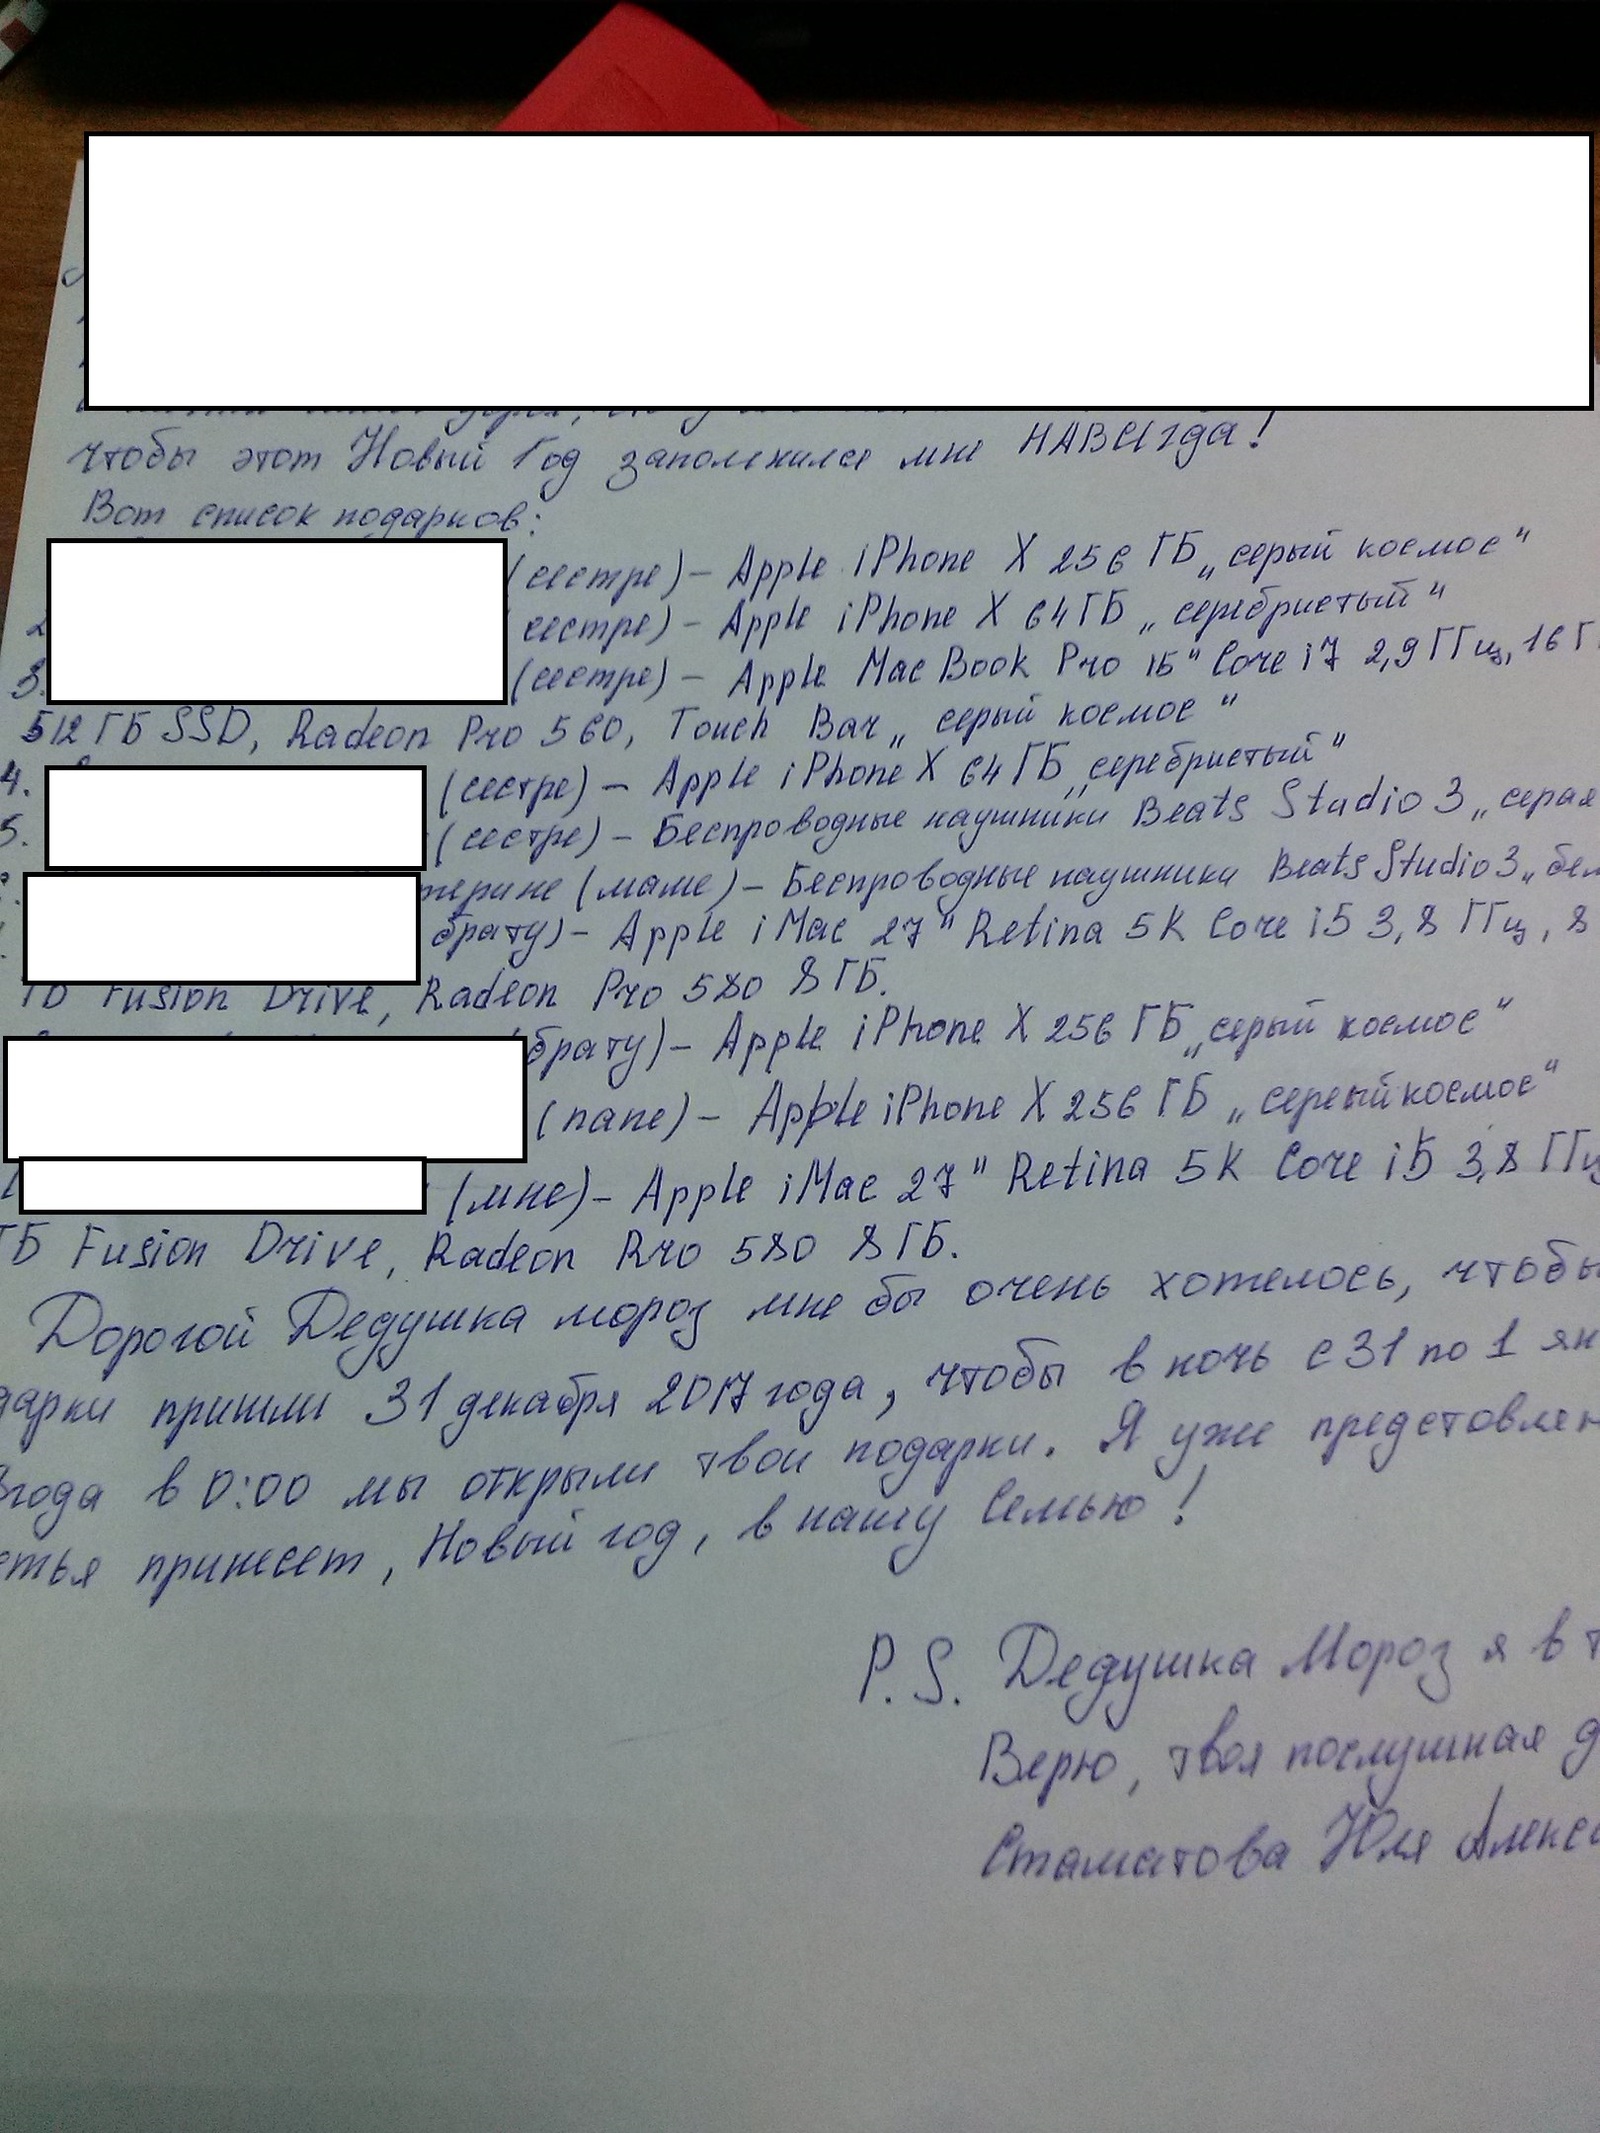 чтобы этот Новый Год запомнился мне НАВСИгда!
Вот список подарков:
(сестре) – Apple iPhone X 256 ГБ „серый космос“
2 сестре) – Apple iPhone X 64 ГБ „серебристый“
3. (сестре) – Apple MacBook Pro 15“ Core i7 2,9 ГГц, 16 Г
512 ГБ SSD, Radeon Pro 560, Touch Bar „серый космос“
4. (сестре) – Apple iPhone X 64 ГБ „серебристый“
5. (сестре) – Беспроводные наушники Beats Studio 3 „серая
терине (маме) – Беспроводные наушники Beats Studio 3 „бел
брату) – Apple iMac 27“ Retina 5K Core i5 3,8 ГГц, 8
ГБ Fusion Drive, Radeon Pro 580 8 ГБ.
брату) – Apple iPhone X 256 ГБ „серый космос“
(папе) – Apple iPhone X 256 ГБ „сереый космос“
(мне) – Apple iMac 27“ Retina 5K Core i5 3,8 ГГц
ГБ Fusion Drive, Radeon Pro 580 8 ГБ.
Дорогой Дедушка мороз мне бы очень хотелось, чтобы
дарки пришли 31 декабря 2017 года, чтобы в ночь с 31 по 1 ян
года в 0:00 мы открыли твои подарки. Я уже предстовлен
стья принесет, Новый год, в нашу Семью!
P.S. Дедушка Мороз я в т
Верю, твоя послушная д
Стаматова Юля Алекса